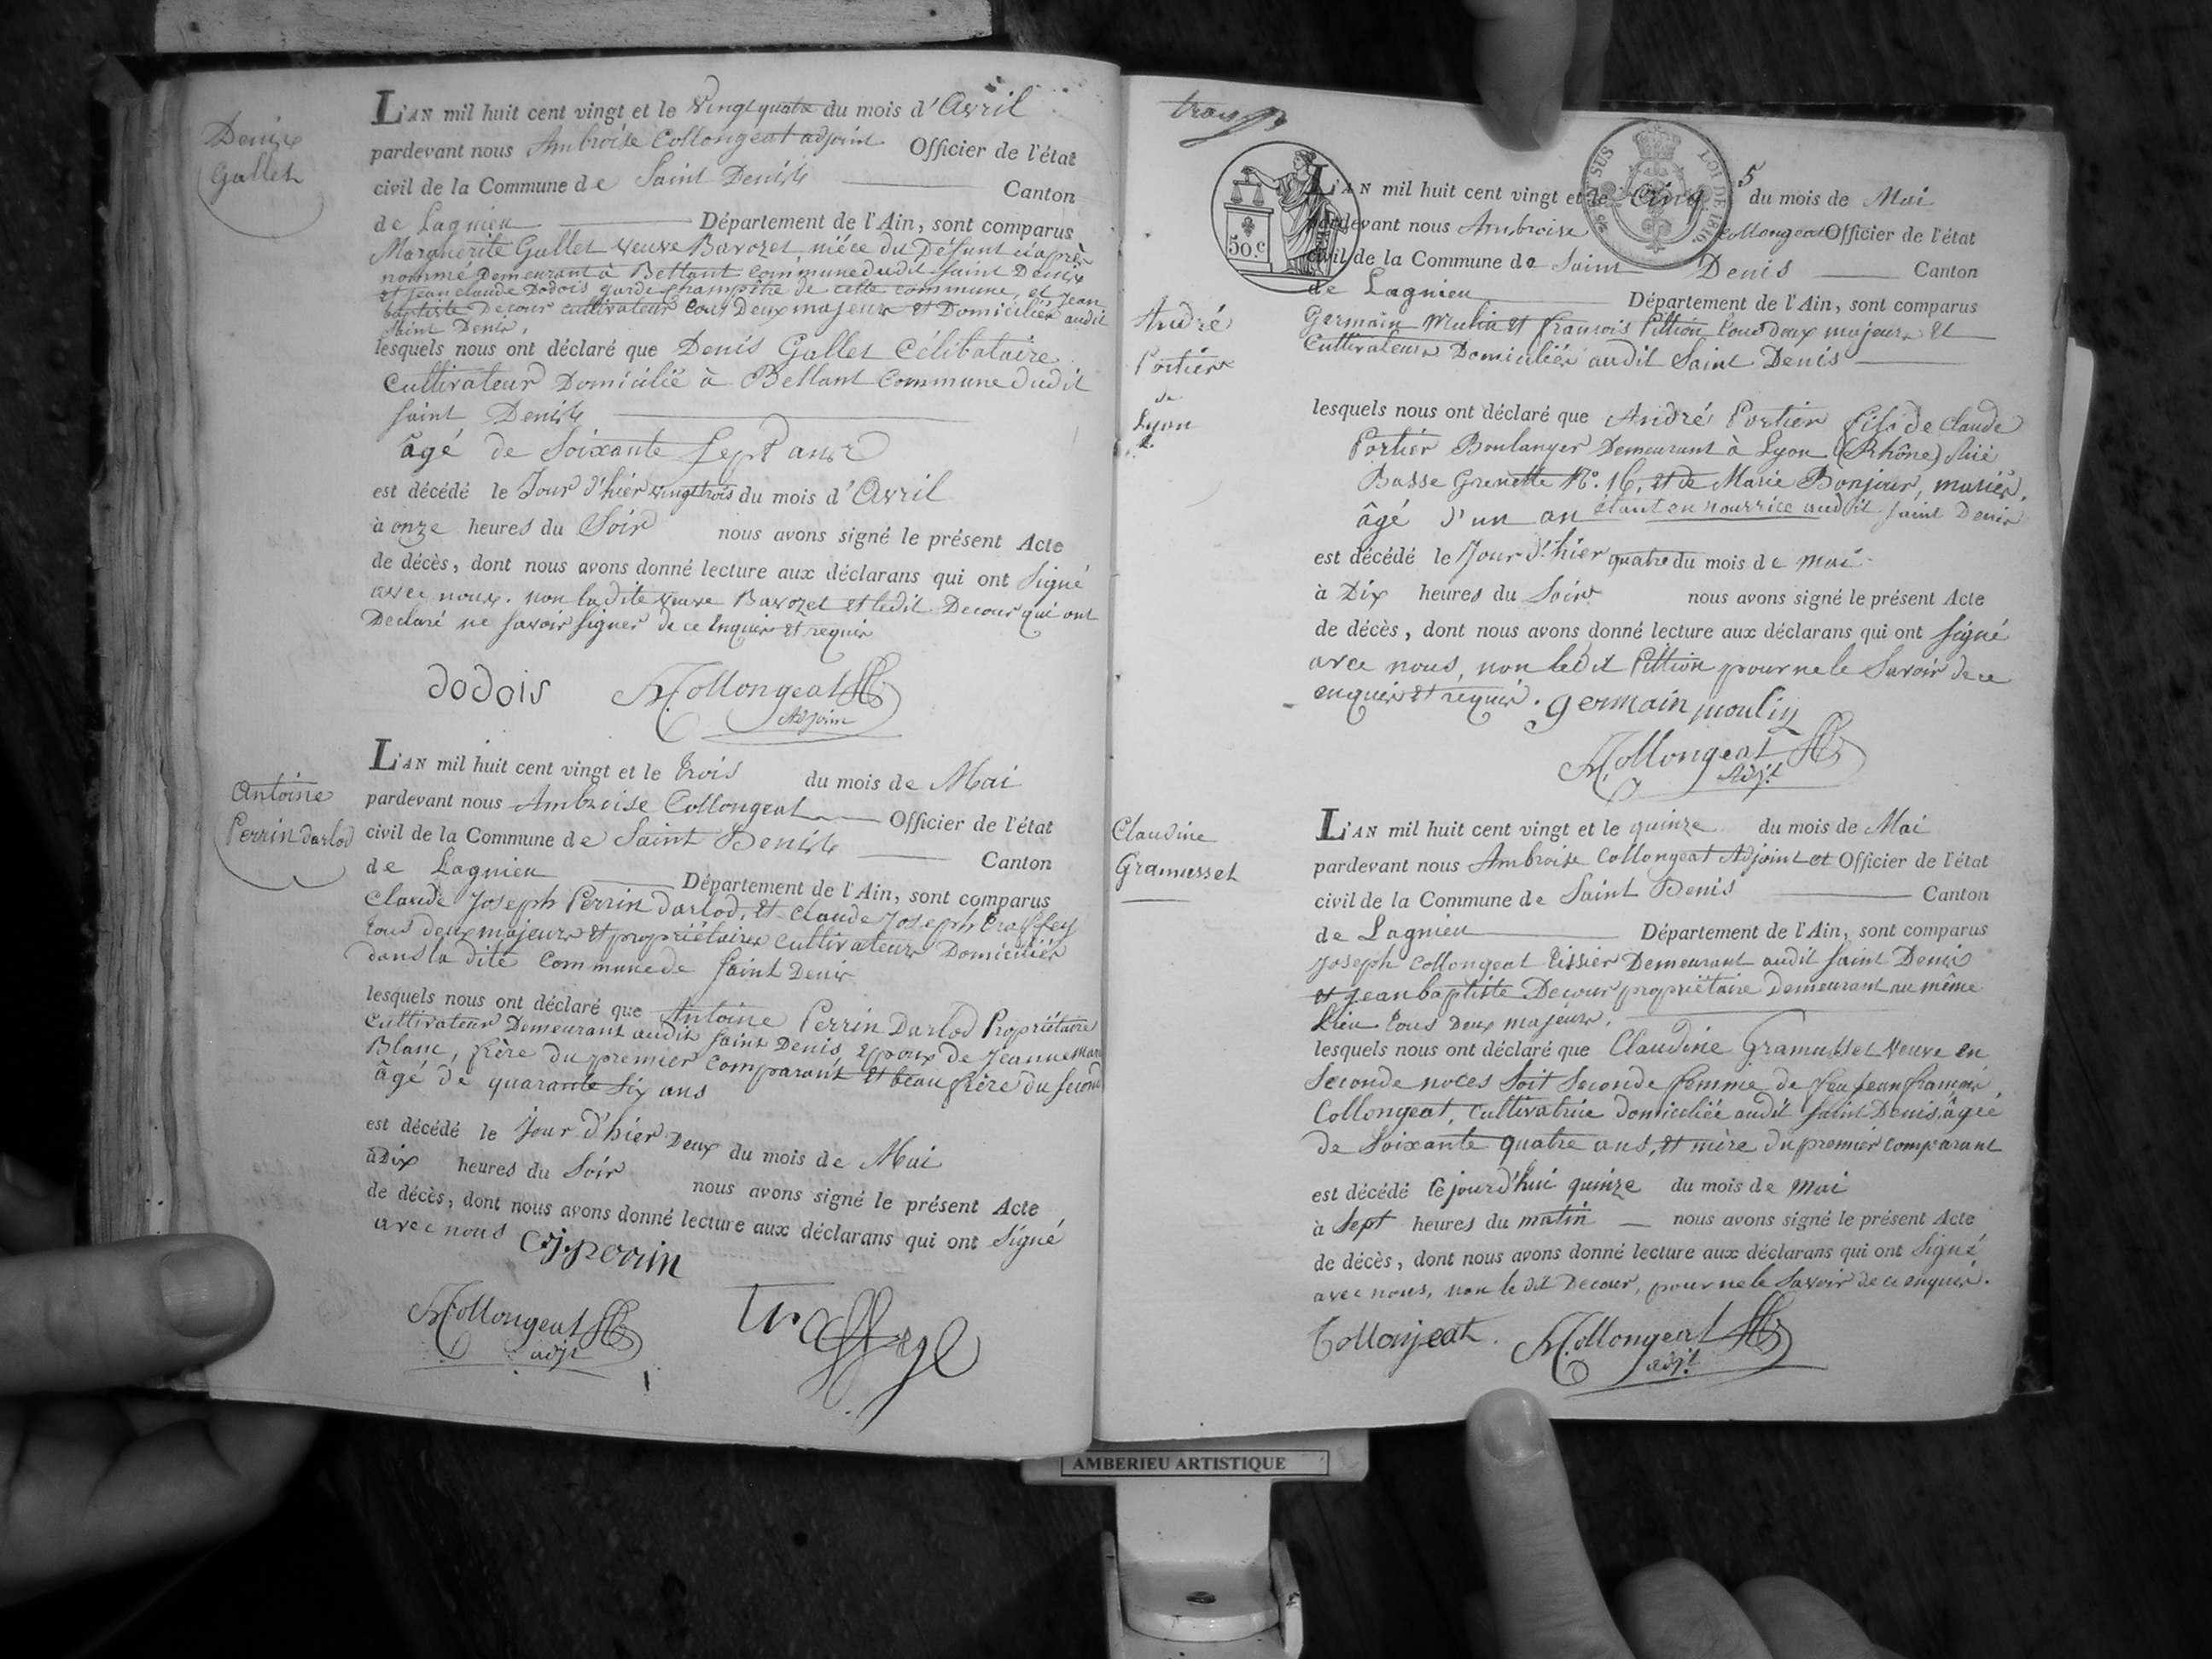 Denis
Gallet
L'AN mil huit cent vingt et le vingt quatre du mois d'Avril
pardevant nous Ambroise Collongeat adjoint Officier de l'état
civil de la Commune de Saint Denis Canton
de Lagnieu Département de l'Ain, sont comparus
Marguerite Gallet veuve Bavozet niéce du Défunt ciaprès
nommé demeurant à Bettant commune dudit Saint Denis
et Jean claude Dodois garde champêtre de cette commune, et Jean
baptiste Decour cultivateur tous Deux majeurs et Domiciliés audit
Saint Denis.
lesquels nous ont déclaré que Denis Gallet Célibataire
Cultivateur Domicilié à Bettant Commune dudit
Saint Denis
âgé de Soixante Sept ans
est décédé le Jour d'hier vingt trois du mois d'Avril
à onze heures du Soir nous avons signé le présent Acte
de décès, dont nous avons donné lecture aux déclarans qui ont Signé
avec nous. non la dite veuve Bavozet et ledit Decour qui ont
Declaré ne savoir signer de ce Enquis et requis
dodois Collongeat
Adjoint
Antoine
Perrin darlod
L'AN mil huit cent vingt et le trois du mois de Mai
pardevant nous Ambroise Collongeat Officier de l'état
civil de la Commune de Saint Denis Canton
de Lagnieu Département de l'Ain, sont comparus
Claude Joseph Perrin darlod, et Claude Joseph
tous deux majeurs et propriétaires cultivateurs Domiciliés
dans la dite Commune de Saint Denis
lesquels nous ont déclaré que Antoine Perrin Darlod Propriétaire
Cultivateur Demeurant audit Saint Denis, Epoux de Jeanne Marie
Blanc, frère du premier Comparant et beau frère du second
âgé de quarante Six ans
est décédé le Jour d'hier Deux du mois de Mai
à Dix heures du Soir nous avons signé le présent Acte
de décès, dont nous avons donné lecture aux déclarans qui ont Signé
avec nous Cjperrin
Collongeat
adjt
5
50.c
LOI DE 1816.
L'AN mil huit cent vingt et le Cinq du mois de Mai
pardevant nous Ambroise Collongeat Officier de l'état
civil de la Commune de Saint Denis Canton
de Lagnieu Département de l'Ain, sont comparus
André
Portier
de
Lyon
Germain Mulin et francois Pittion tous deux majeurs et
Cultivateurs Domiciliés audit Saint Denis
lesquels nous ont déclaré que André Portier fils de Claude
Portier Boulanger Demeurant à Lyon (Rhône) Rüe
Basse Grenette N.º 16, et de Marie Bonjour, mariés,
âgé d'un an étant en nourrice audit Saint Denis
est décédé le Jour d'hier quatre du mois de mai
à Dix heures du Soir nous avons signé le présent Acte
de décès, dont nous avons donné lecture aux déclarans qui ont signé
avec nous, non ledit Pittion pour ne le Savoir de ce
enquis et requis. germain moulin
Collongeat
Adjt
Claudine
Gramusset
L'AN mil huit cent vingt et le quinze du mois de Mai
pardevant nous Ambroise Collongeat Adjoint et Officier de l'état
civil de la Commune de Saint Denis Canton
de Lagnieu Département de l'Ain, sont comparus
Joseph Collongeat tissier Demeurant audit Saint Denis
et Jean baptiste Decour propriétaire demeurant au même
Lieu tous Deux majeurs.
lesquels nous ont déclaré que Claudine Gramusset veuve en
Seconde noces Soit Seconde femme de feu Jean françois
Collongeat, cultivatrice domiciliée audit Saint Denis, âgée
de Soixante quatre ans, et mère du premier comparant
est décédé le jourd'hui quinze du mois de mai
à Sept heures du matin nous avons signé le présent Acte
de décès, dont nous avons donné lecture aux déclarans qui ont Signé
avec nous, non le dit Decour, pour ne le Savoir de ce enquis.
Collonjeat. Collongeat
adjt
AMBERIEU ARTISTIQUE